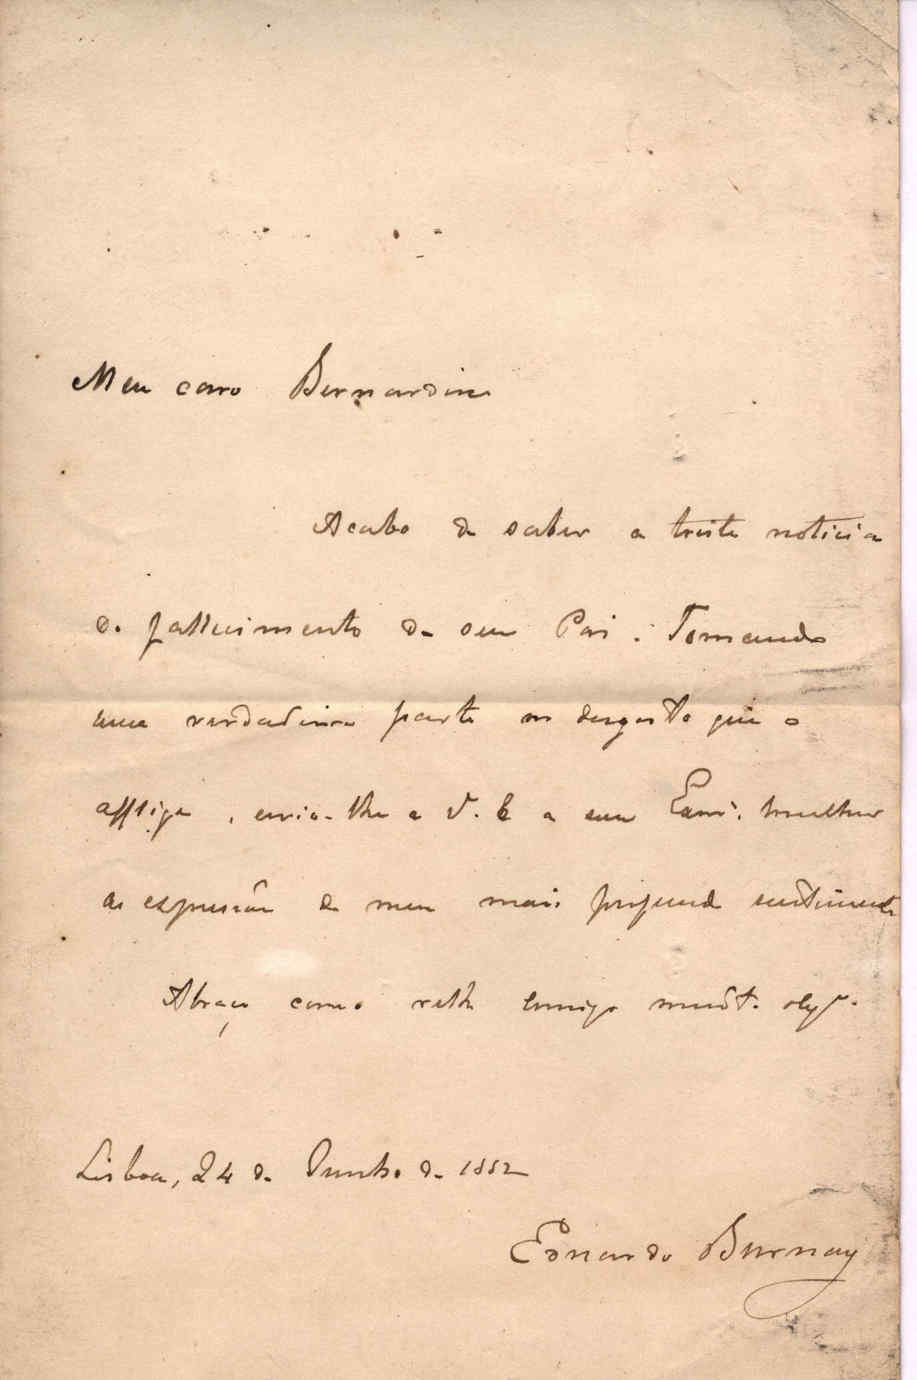 Meu caro Bernardino
Acabo de saber a triste noticia
do fallecimento de seu Pai. Tomando
uma verdadeira parte no desgosto que o
afflige, envio-lhe a V. E a sua Exmª. mulher
a expressão de meu mais profundo sentimento
Abraça como velho amigo muit.
Lisboa, 24 de Junho de 1882
Eduardo Burnay